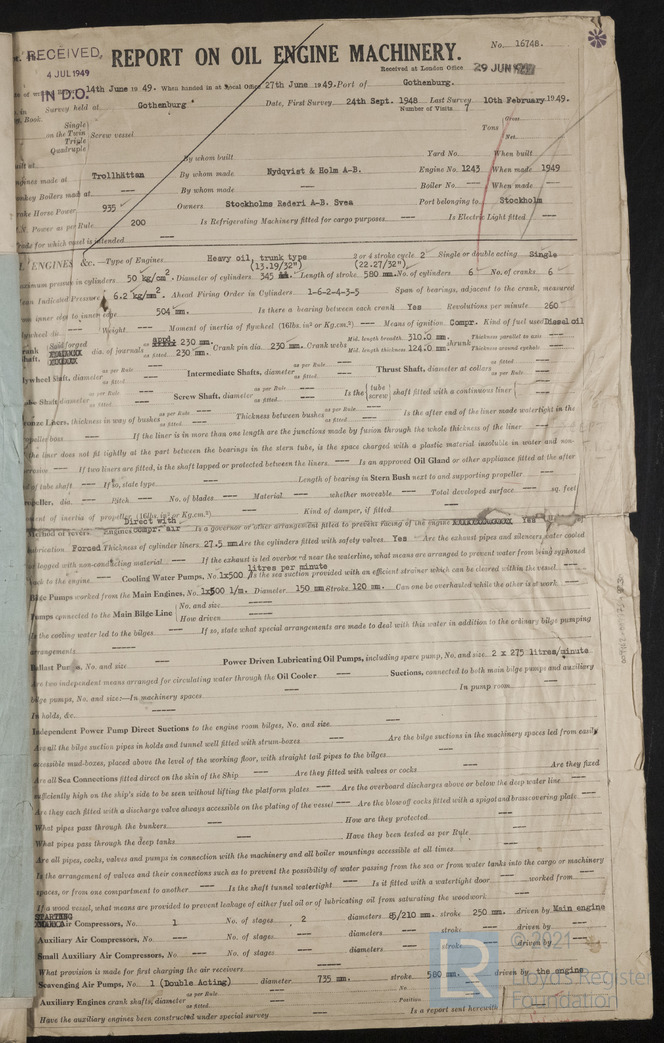 RECEIVED,
4 JUL 1949
IN D.O.
REPORT ON OIL ENGINE MACHINERY.
No. 16748.
Received at London Office 29 JUN
14th June 19 49. When handed in at Local Office 27th June 19 49. Port of Gothenburg.
Survey held at Gothenburg Date, First Survey 24th Sept. 1948 Last Survey 10th February 19 49.
Book. Number of Visits 7
Single
on the Twin
Triple
Quadruple
Screw vessel
Tons Gross
Net
built at By whom built Yard No. When built
Engines made at Trollhättan By whom made Nydqvist & Holm A-B. Engine No. 1243 When made 1949
Donkey Boilers made at --- By whom made --- Boiler No. --- When made ---
Brake Horse Power 935 Owners Stockholms Rederi A-B. Svea Port belonging to Stockholm
Power as per Rule 200 Is Refrigerating Machinery fitted for cargo purposes --- Is Electric Light fitted ---
Trade for which vessel is intended ---
ENGINES &c.—Type of Engines Heavy oil, trunk type 2 or 4 stroke cycle 2 Single or double acting Single
(13.19/32") (22.27/32")
Maximum pressure in cylinders 50 kg/cm² Diameter of cylinders 345 Length of stroke 580 mm. No. of cylinders 6 No. of cranks 6
Mean Indicated Pressure 6.2 kg/mm². Ahead Firing Order in Cylinders 1-6-2-4-3-5 Span of bearings, adjacent to the crank, measured
from inner edge to inner edge 504 mm. Is there a bearing between each crank Yes Revolutions per minute 260
Flywheel dia. Weight --- Moment of inertia of flywheel (16lbs. in² or Kg.cm².) --- Means of ignition Compr. Kind of fuel used Diesel oil
Crank Shaft, Solid forged dia. of journals as per Rule appd: 230 mm. as fitted 230 mm. Crank pin dia. 230 mm. Crank webs Mid. length breadth 310.0 mm. Mid. length thickness 124.0 mm. shrunk Thickness parallel to axis --- Thickness around eyehole ---
Flywheel Shaft, diameter as per Rule as fitted Intermediate Shafts, diameter as per Rule as fitted Thrust Shaft, diameter at collars as fitted as per Rule
Tube Shaft, diameter as per Rule as fitted Screw Shaft, diameter as per Rule as fitted Is the tube screw shaft fitted with a continuous liner ---
Bronze Liners, thickness in way of bushes as per Rule as fitted Thickness between bushes as per Rule as fitted Is the after end of the liner made watertight in the
propeller boss --- If the liner is in more than one length are the junctions made by fusion through the whole thickness of the liner ---
If the liner does not fit tightly at the part between the bearings in the stern tube, is the space charged with a plastic material insoluble in water and non-
corrosive --- If two liners are fitted, is the shaft lapped or protected between the liners --- Is an approved Oil Gland or other appliance fitted at the after
end of tube shaft --- If so, state type --- Length of bearing in Stern Bush next to and supporting propeller ---
Propeller, dia. --- Pitch --- No. of blades --- Material --- whether moveable --- Total developed surface --- sq. feet
Moment of inertia of propeller (16lbs. in² or Kg.cm².) --- Kind of damper, if fitted ---
Method of reversing Engines Direct with compr. air Is a governor or other arrangement fitted to prevent racing of the engine Yes
Lubrication Forced Thickness of cylinder liners 27.5 mm Are the cylinders fitted with safety valves Yes Are the exhaust pipes and silencers water cooled
or lagged with non-conducting material --- If the exhaust is led overboard near the waterline, what means are arranged to prevent water from being syphoned
back to the engine --- Cooling Water Pumps, No. 1x500 litres per minute Is the sea suction provided with an efficient strainer which can be cleared within the vessel ---
Bilge Pumps worked from the Main Engines, No. 1x500 l/m. Diameter 150 mm Stroke 120 mm. Can one be overhauled while the other is at work ---
Pumps connected to the Main Bilge Line No. and size --- How driven ---
Is the cooling water led to the bilges --- If so, state what special arrangements are made to deal with this water in addition to the ordinary bilge pumping
arrangements ---
Ballast Pumps, No. and size --- Power Driven Lubricating Oil Pumps, including spare pump, No. and size 2 x 275 litres/minute
Are two independent means arranged for circulating water through the Oil Cooler --- Suctions, connected to both main bilge pumps and auxiliary
bilge pumps, No. and size:—In machinery spaces --- In pump room ---
In holds, &c. ---
Independent Power Pump Direct Suctions to the engine room bilges, No. and size ---
Are all the bilge suction pipes in holds and tunnel well fitted with strum-boxes --- Are the bilge suctions in the machinery spaces led from easily
accessible mud-boxes, placed above the level of the working floor, with straight tail pipes to the bilges ---
Are all Sea Connections fitted direct on the skin of the Ship --- Are they fitted with valves or cocks --- Are they fixed
sufficiently high on the ship's side to be seen without lifting the platform plates --- Are the overboard discharges above or below the deep water line ---
Are they each fitted with a discharge valve always accessible on the plating of the vessel --- Are the blow off cocks fitted with a spigot and brass covering plate ---
What pipes pass through the bunkers --- How are they protected ---
What pipes pass through the deep tanks --- Have they been tested as per Rule ---
Are all pipes, cocks, valves and pumps in connection with the machinery and all boiler mountings accessible at all times ---
Is the arrangement of valves and their connections such as to prevent the possibility of water passing from the sea or from water tanks into the cargo or machinery
spaces, or from one compartment to another --- Is the shaft tunnel watertight --- Is it fitted with a watertight door --- worked from ---
If a wood vessel, what means are provided to prevent leakage of either fuel oil or of lubricating oil from saturating the woodwork ---
STARTING
Air Compressors, No. 1 No. of stages 2 diameters 85/210 mm. stroke 250 mm. driven by Main engine
Auxiliary Air Compressors, No. --- No. of stages --- diameters --- stroke --- driven by ---
Small Auxiliary Air Compressors, No. --- No. of stages --- diameters --- stroke --- driven by ---
What provision is made for first charging the air receivers ---
Scavenging Air Pumps, No. 1 (Double Acting) diameter 735 mm. stroke 580 mm. driven by the engine
Auxiliary Engines crank shafts, diameter as per Rule as fitted No. Position
Have the auxiliary engines been constructed under special survey --- Is a report sent herewith
© 2021
Lloyd's Register
Foundation